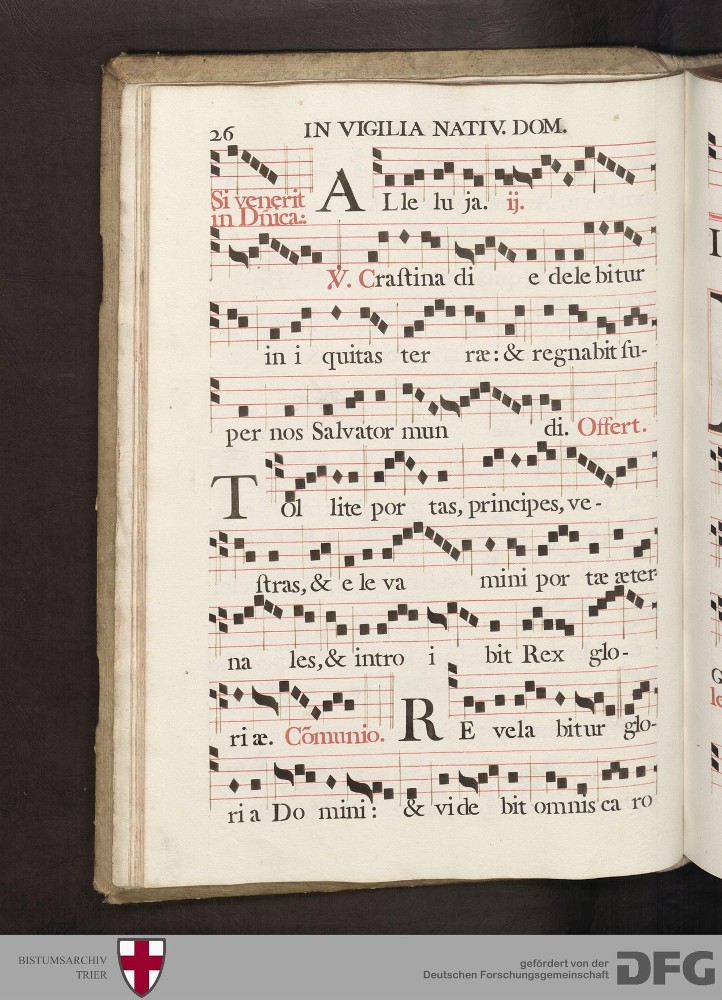 26 IN VIGILIA NATIV. DOM.
Si venerit
in Dñica:
A Lle lu ja. ij.
℣. Craſtina di e dele bitur
in i quitas ter ræ: & regnabit ſu-
per nos Salvator mun di. Offert.
T Ol lite por tas, principes, ve-
ſtras, & e le va mini por tæ æter-
na les, & intro i bit Rex glo-
ri æ. Cõmunio. R E vela bitur glo-
ri a Do mini: & vide bit omnis ca ro
BISTUMSARCHIV
TRIER
gefördert von der
Deutschen Forschungsgemeinschaft
DFG